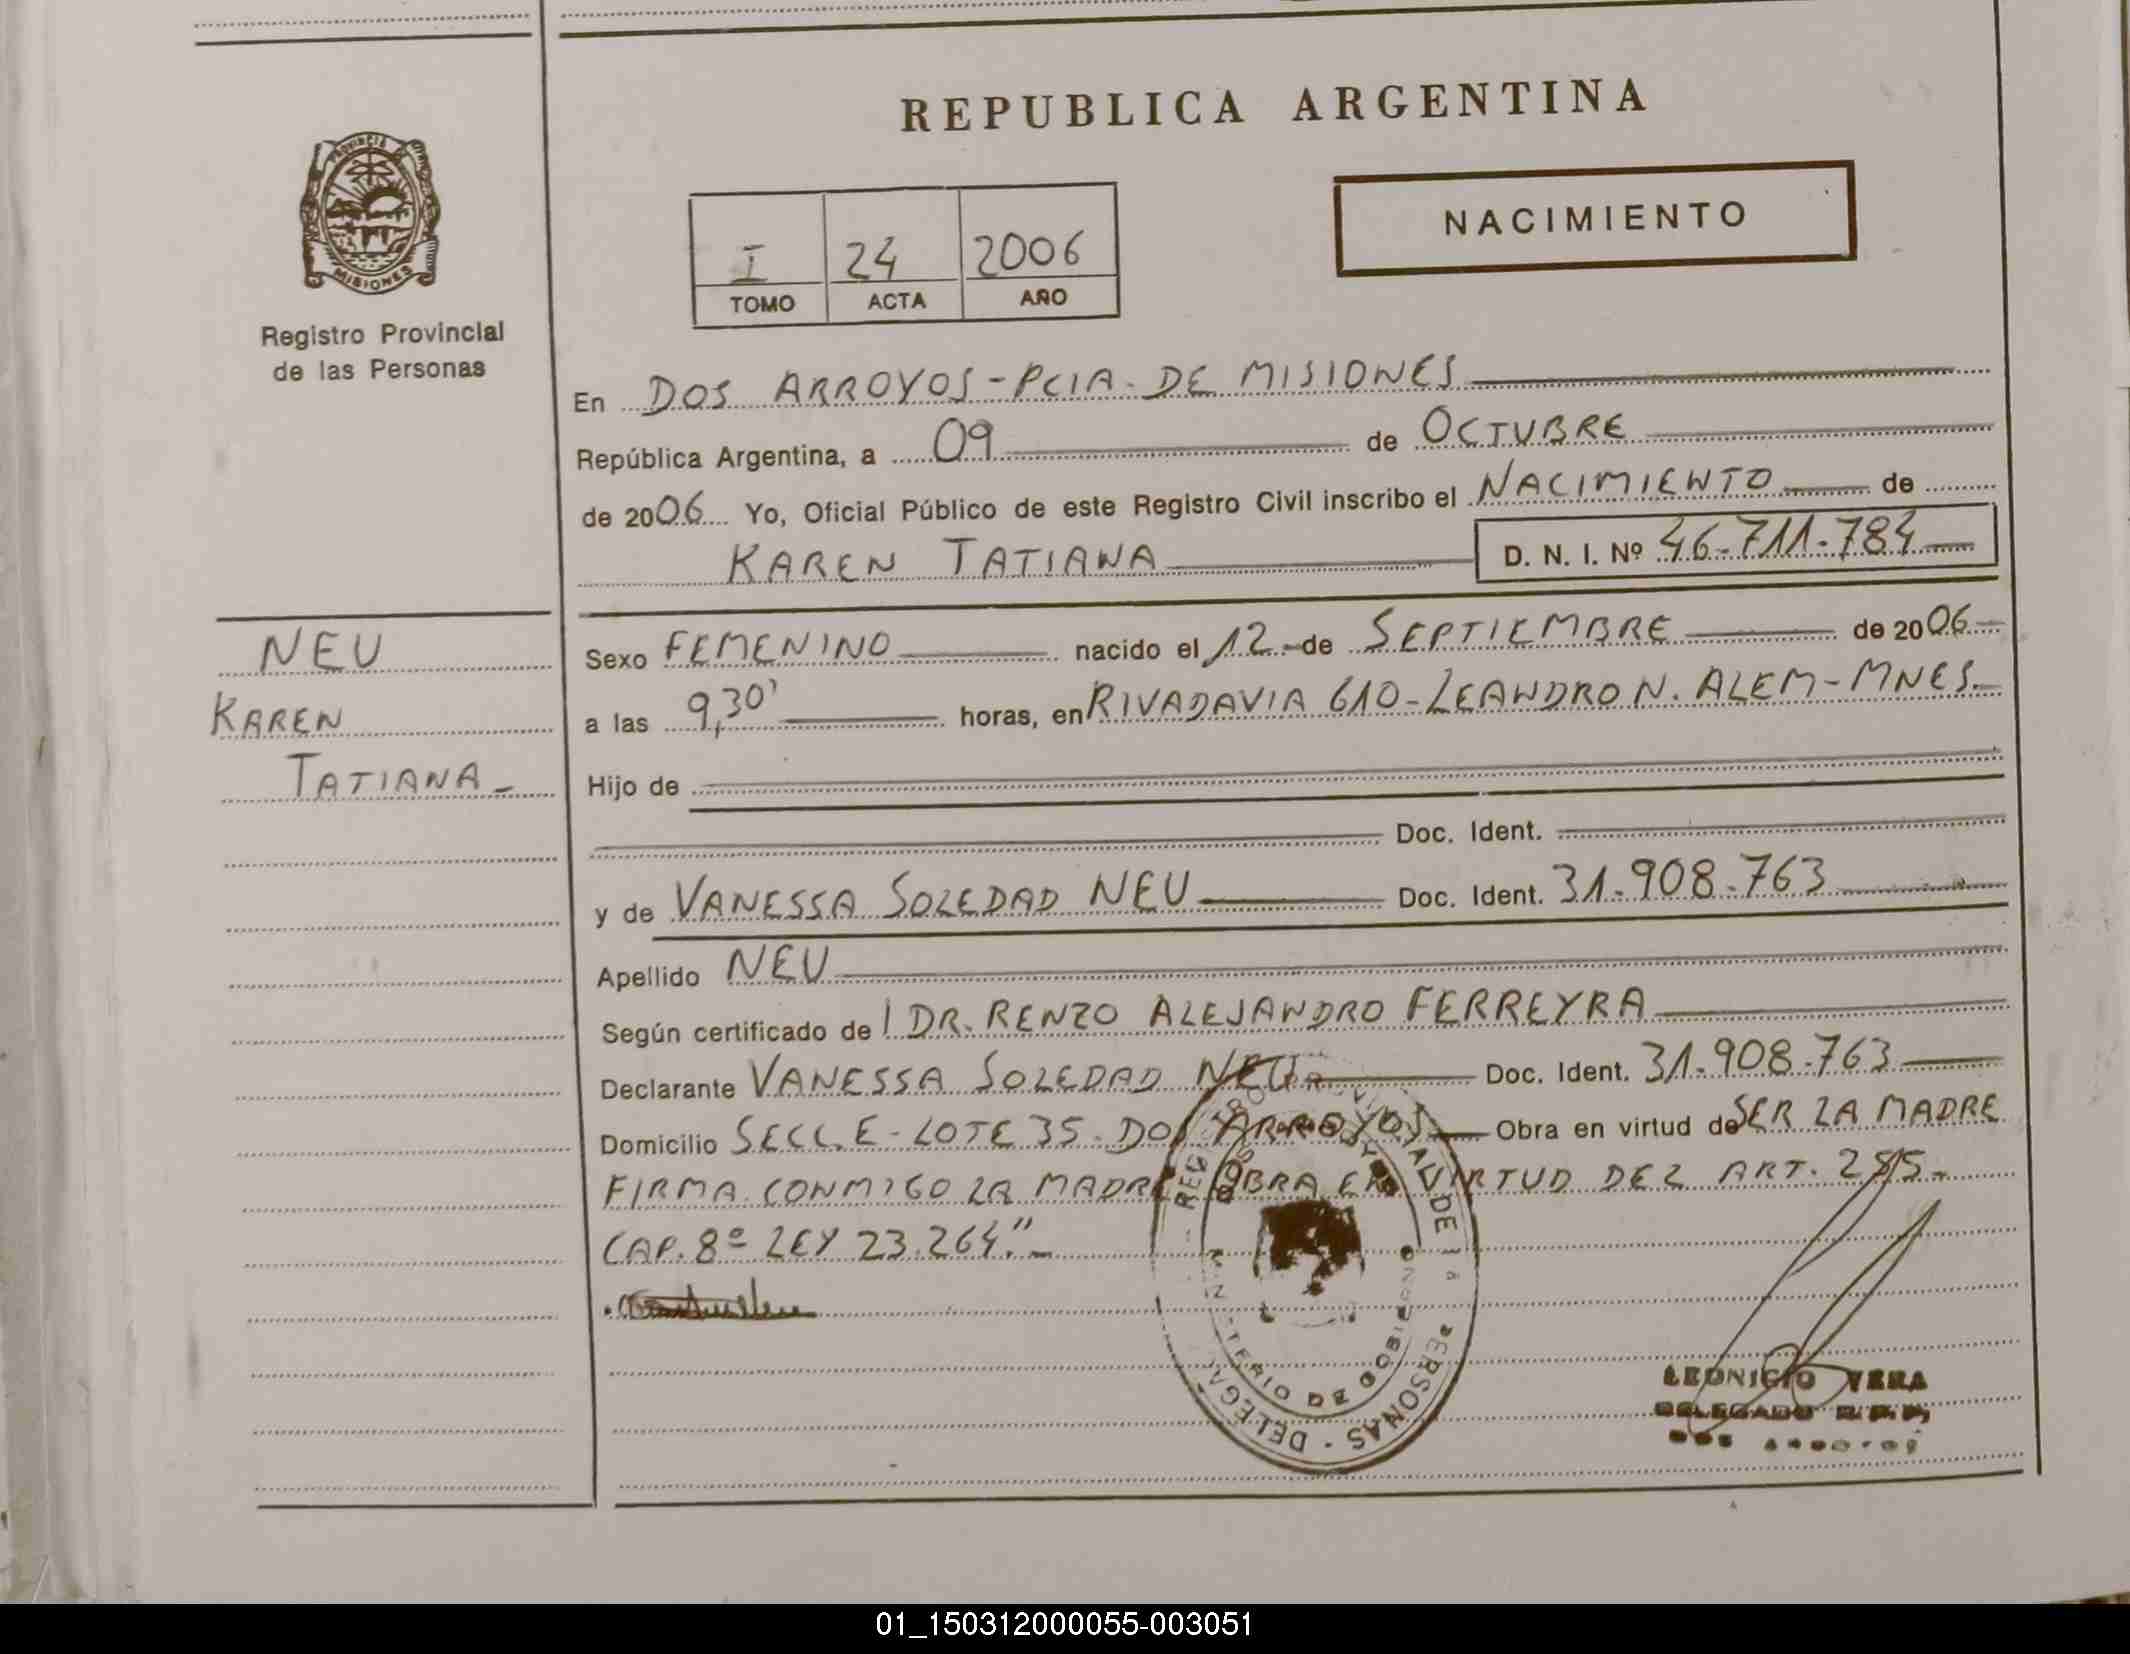 REPUBLICA ARGENTINA
PROVINCIA DE MISIONES
Registro Provincial
de las Personas
NACIMIENTO
I 24 2006
TOMO ACTA AÑO
En DOS ARROYOS - PCIA. DE MISIONES
República Argentina, a 09 de OCTUBRE
de 2006 Yo, Oficial Público de este Registro Civil inscribo el NACIMIENTO de
KAREN TATIANA D. N. I. Nº 46.711.784
NEU
KAREN
TATIANA
Sexo FEMENINO nacido el 12 de SEPTIEMBRE de 2006
a las 9,30' horas, en RIVADAVIA 610 - LEANDRO N. ALEM - MNES.
Hijo de
Doc. Ident.
y de VANESSA SOLEDAD NEU Doc. Ident. 31.908.763
Apellido NEU
Según certificado de DR. RENZO ALEJANDRO FERREYRA
Declarante VANESSA SOLEDAD NEU Doc. Ident. 31.908.763
Domicilio SECC. E - LOTE 35 - DOS ARROYOS Obra en virtud de SER LA MADRE
FIRMA CONMIGO LA MADRE OBRA EN VIRTUD DEL ART. 255.
CAP. 8º LEY 23.264."
PERSONAS - DELEGA
DE GOBIERNO
LEONICIO VERA
DELEGADO R. P. P.
DOS ARROYOS
01_150312000055-003051